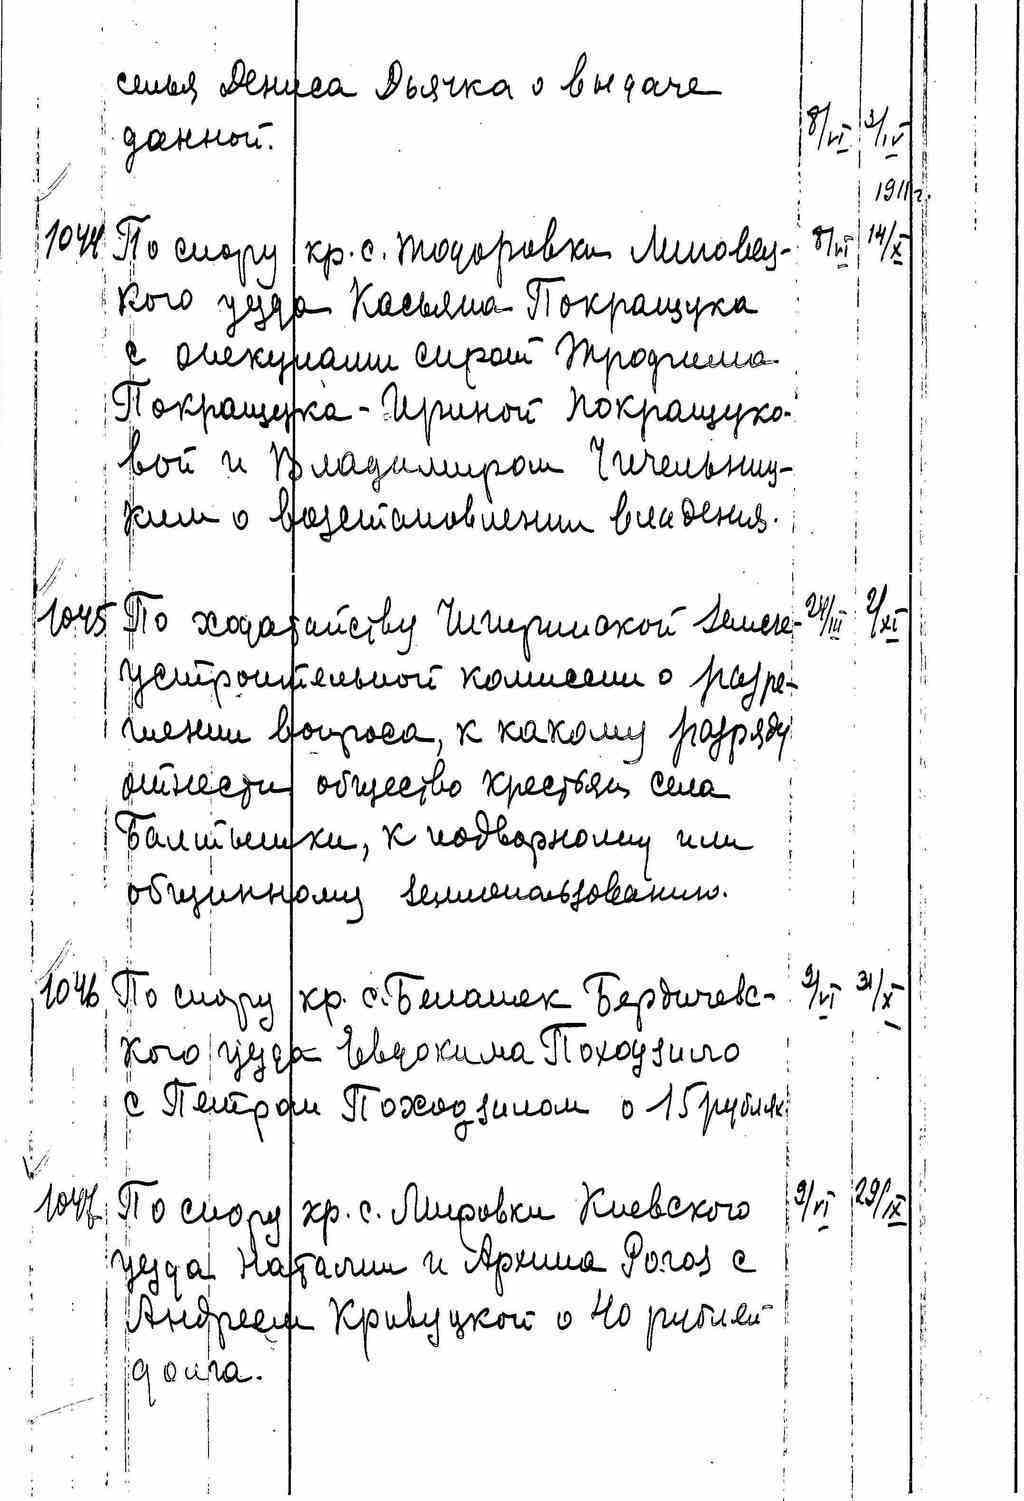 семья Дениса Дьячка о выдаче
данной. 8/VI 3/IV
1911 г.
1044 По спору кр. с. Тодоровки Липовец- 8/VI 14/X
кого уезда Касьяна Покращука
с опекунами сирот Трофима
Покращука - Ириной Покращуко-
вой и Владимиром Чечельниц-
ким о возстановлении владения.
1045 По ходатайству Чигиринской земле- 24/III 2/XI
устроительной комиссии о разре-
шении вопроса, к какому разряду
отнести общество крестьян села
Балтышки, к подворному или
общинному землепользованию.
1046 По спору кр. с. Белашек Бердичевс- 9/VI 31/X
кого уезда Евдокима Походзило
с Петром Походзилом о 15 рублях
1047 По спору кр. с. Мировки Киевского 9/VI 29/IX
уезда Наталии и Архипа Рогоз с
Андреем Кривуцкой о 40 рублей
долга.